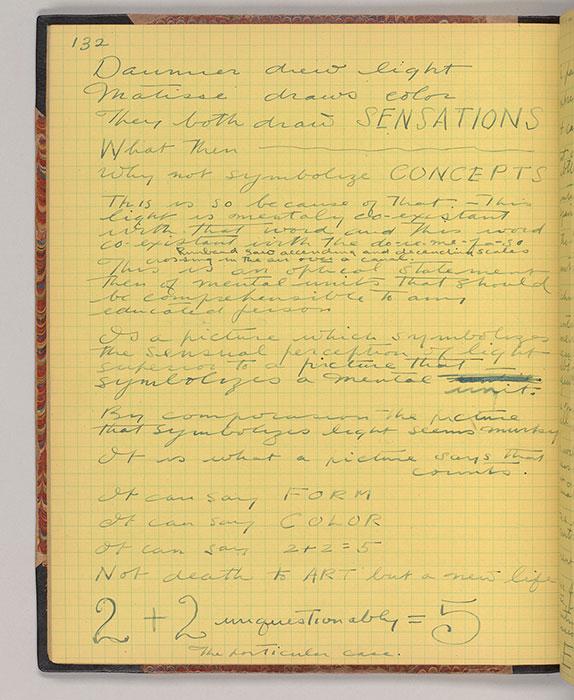 132
Daumier drew light
Matisse draws color
They both draw SENSATIONS
What then
Why not symbolize CONCEPTS
This is so because of that. - This
light is mentaly co-existant
with that word and this word
co-existant with the do-re-me-fa-so
Rimbaud saw ascending and descending scales
crossing in the air over a canal.
This is an optical statement
then of mental units that should
be comprehensible to any
educated person
Is a picture which symbolizes
the sensual perception of light
superior to a picture that
symbolizes a mental
unit.
By comparason the picture
that symbolizes light seems murky
It is what a picture says that
counts.
It can say FORM
It can say COLOR
It can say 2+2=5
Not death to ART but a new life
2 + 2 unquestionably = 5
The particular case.